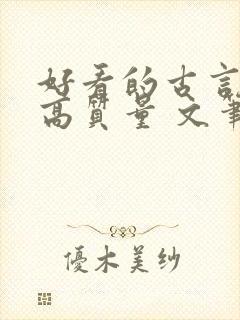 好看的古言
高质量 文笔
優木美纱